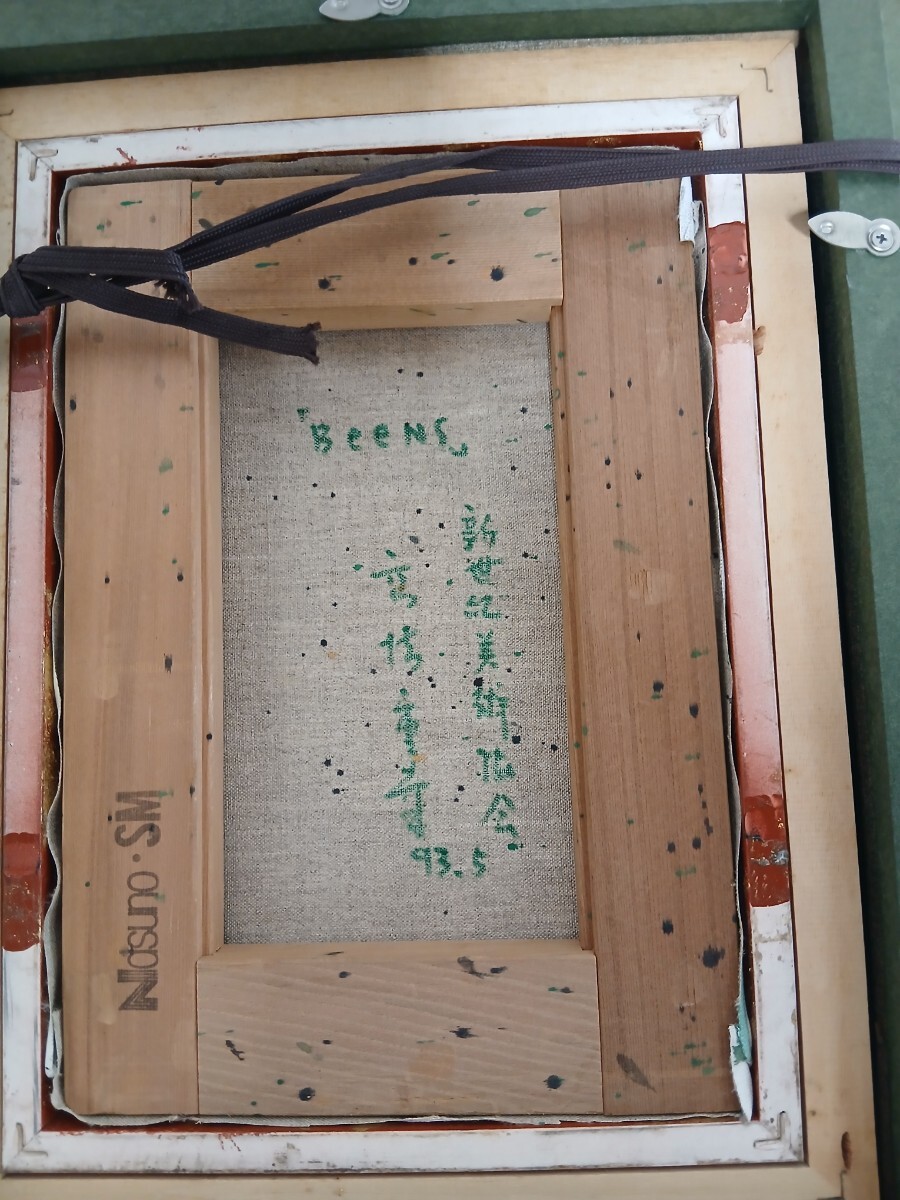 「BeeNS」
新世紀美術協会
93.5
Nasuno・SM